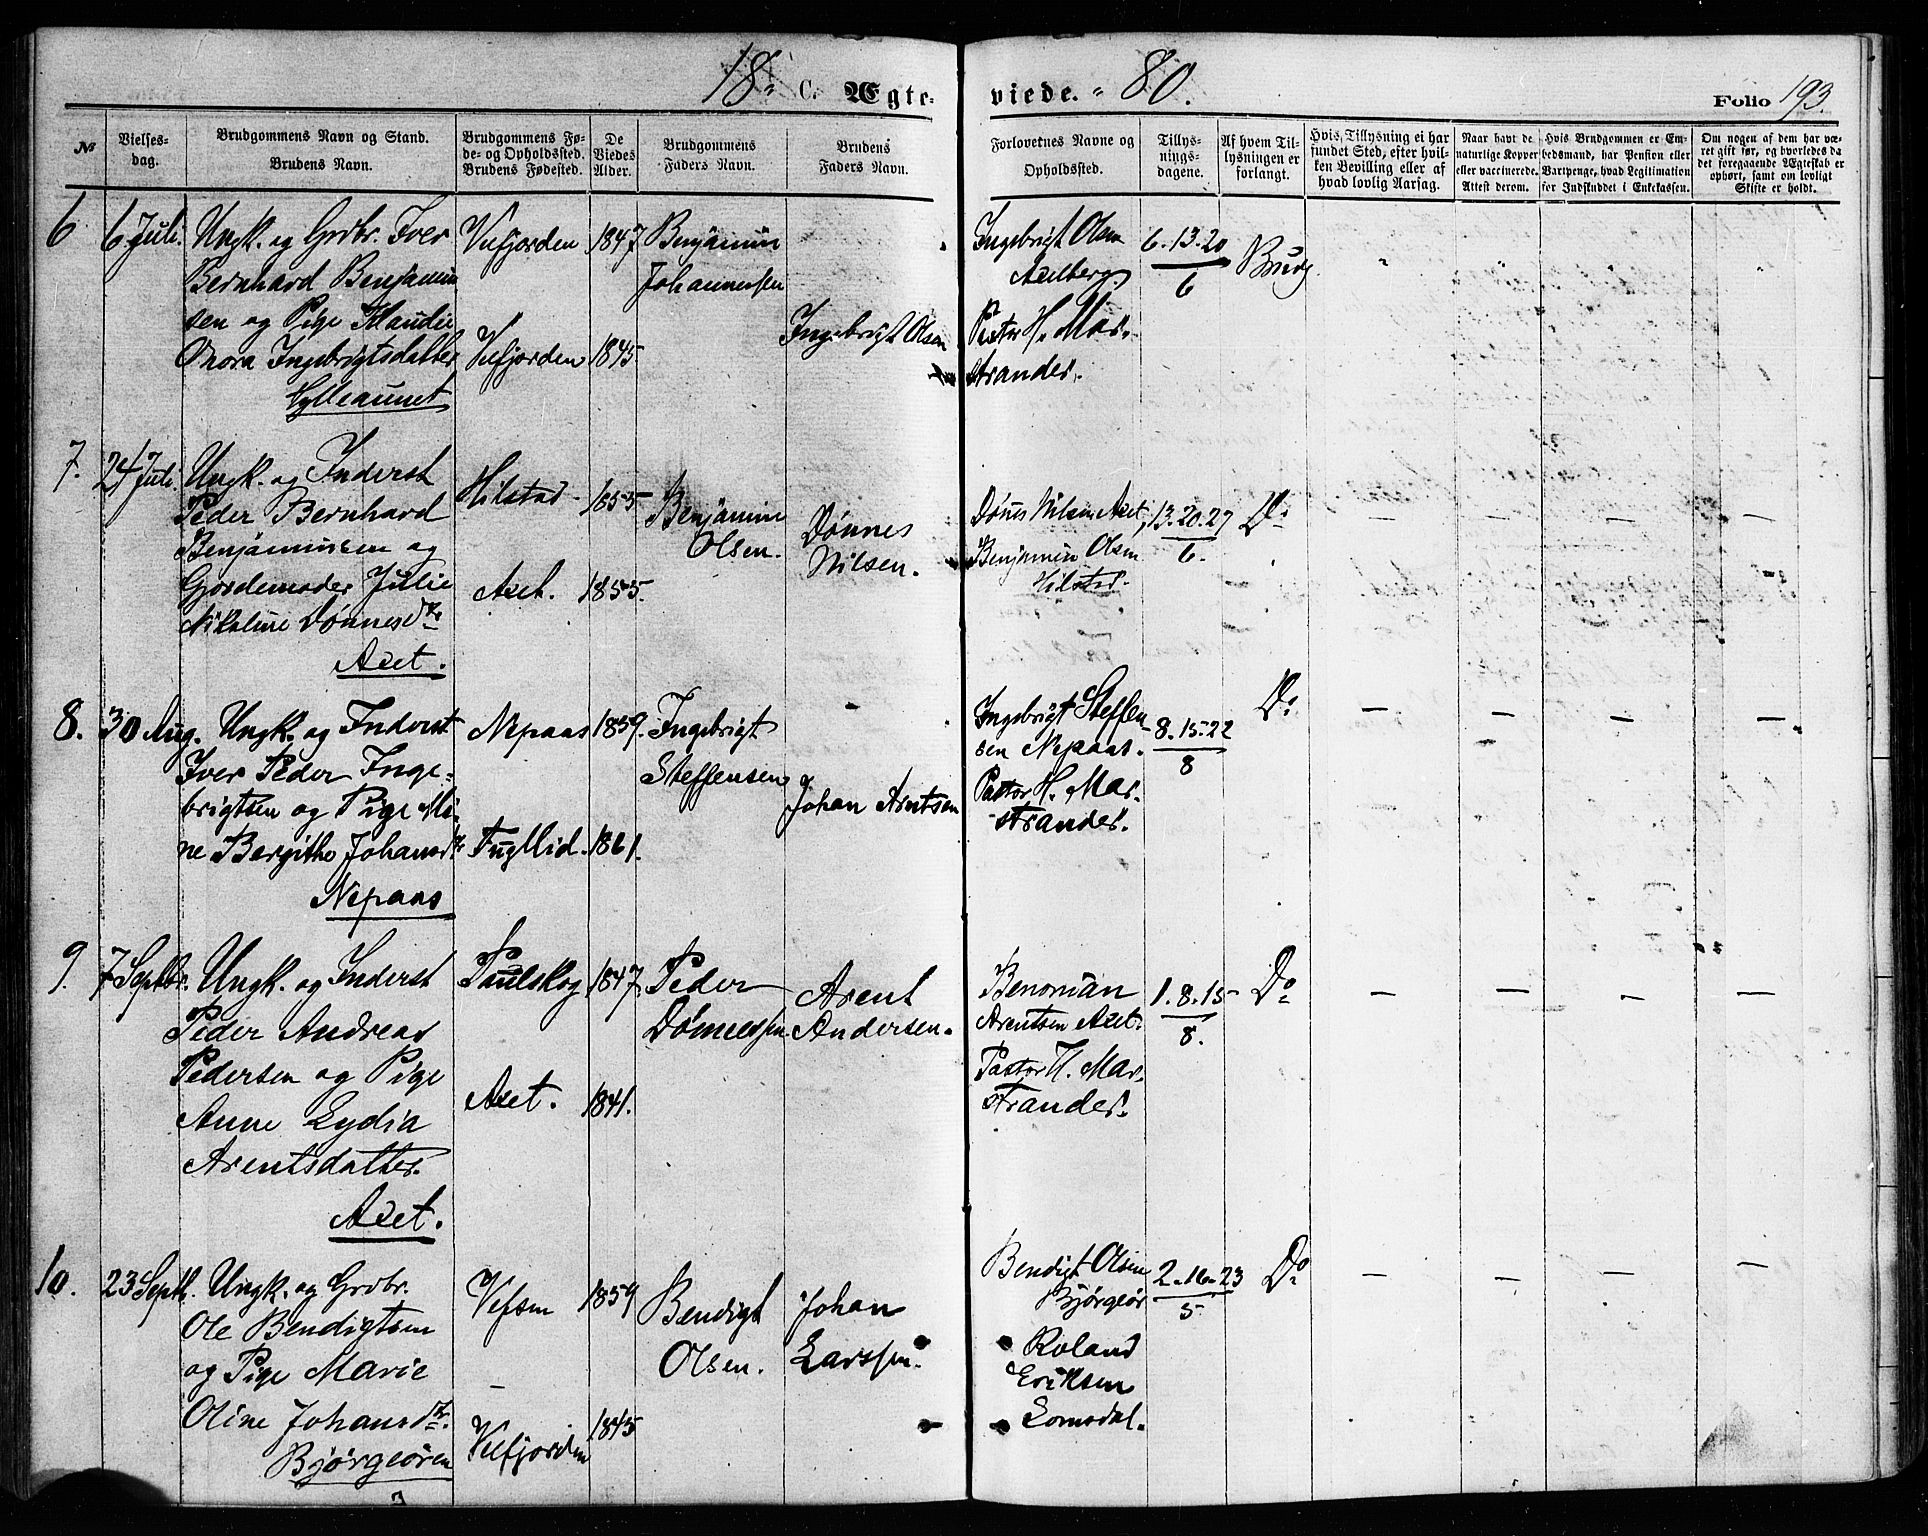 18 C. Ægteviede. 80. Folio 193.
№
Vielsesdag.
Brudgommens Navn og Stand.
Brudens Navn.
Brudgommens Fø-
de- og Opholdssted.
Brudens Fødested.
De
Viedes
Alder.
Brudgommens
Faders Navn.
Brudens
Faders Navn.
Forlovernes Navne og
Opholdssted.
Tillys-
nings-
dagene.
Af hvem Til-
lysningen er
forlangt.
Hvis Tillysning ei har
fundet Sted, efter hvil-
ken Bevilling eller af
hvad lovlig Aarsag.
Naar havt de
naturlige Kopper
eller vaccinerede.
Attest derom.
Hvis Brudgommen er Em-
bedsmand, har Pension eller
Vartpenge, hvad Legitimation
for Indskuddet i Enkekassen.
Om nogen af dem har væ-
ret gift før, og hvorledes da
det foregaaende Ægteskab er
ophørt, samt om lovligt
Skifte er holdt.
6
6 Juli.
Ungk. og Grdbr. Iver
Bernhard Benjamin
sen og Pige Haudie
Onora Ingebrigtsdatter
Hylleaunet
Velfjorden
Velfjorden
1847
1845
Benjamin
Johannessen
Ingebrigt Olsen
Ingebrigt Olsen
Axelberg
Pastor H. Mar-
strander.
6. 13. 20
6
Brudg.
7.
24 Juli.
Ungk. og Inderst
Peder Bernhard
Benjaminsen og
Gjordemoder Julie
Nikoline Dønnesdtr.
Axet.
Hilstad
Axet.
1855
1855.
Benjamin
Olsen.
Dønnes
Nilsen.
Dønnes Nilsen Axet,
Benjamin Olsen
Hilstad.
13. 20. 27
6.
Do
8.
30 Aug.
Ungk. og Inderst
Iver Peder Inge-
brigtsen og Pige Mi-
ne Bergithe Johansdtr.
Nepaas
Nepaas
Fugllid.
1859.
1861.
Ingebrigt
Steffensen
Johan Arntsen
Ingebrigt Steffen-
sen Nepaas.
Pastor H. Mar-
strander.
8. 15. 22
8
Do
9.
7 Septbr.
Ungk. og Inderst
Peder Andreas
Pedersen og Pige
Anne Lydia
Arentsdatter.
Axet.
Paulskog
Axet.
1847.
1841.
Peder
Dønnessen
Arent
Andersen.
Benoman
Arentsen Axet.
Pastor H. Mar-
strander.
1. 8. 15
8.
Do
10.
23 Septb.
Ungk. og Grdbr.
Ole Bendigtsen
og Pige Marie
Oline Johansdtr.
Bjørgeøren
Vefsen
Velfjorden
1859
1845
Bendigt
Olsen.
Johan
Larssen.
Bendigt Olsen
Bjørgeør
Roland
Eriksen
Lomsdal.
2. 16. 23
5
Do